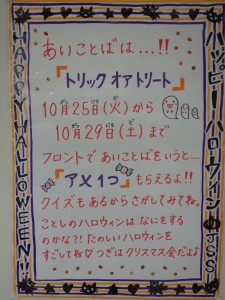 あいことばは…!!
「トリック オア トリート」
10月25日(火)から
10月29日(土)まで
フロントであいことばをいうと…
「アメ1つ」もらえるよ!!
クイズもあるからさがしてみてね。
ことしのハロウィンはなにをする
のかな?! たのしいハロウィンを
すごしてね♡ つぎはクリスマス会だよ♪
HAPPY HALLOWEEN!!
ハッピーハロウィン